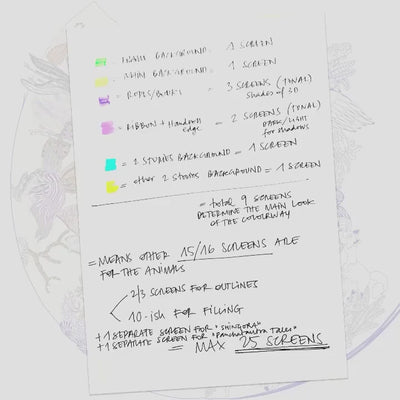 = BACKGROUND = 1 SCREEN
= MAIN BACKGROUND = 1 SCREEN
= = 3 SCREENS (TONAL)
shades of 3D
= RIBBON + Handroll = 2 SCREENS (TONAL)
edge DARK/LIGHT
for shadows
= 2 STORIES BACKGROUND = 1 SCREEN
= other 2 STORIES BACKGROUND = 1 SCREEN
= total 9 SCREENS
DETERMINE THE MAIN LOOK
OF THE COLORWAY
= MEANS OTHER 15/16 SCREENS ARE
FOR THE ANIMALS
2/3 SCREENS FOR OUTLINES
10-ish FOR FILLING
+ 1 SEPARATE SCREEN FOR "SHINGORA"
+ 1 SEPARATE SCREEN FOR "Panchatantra Tales"
= MAX 25 SCREENS